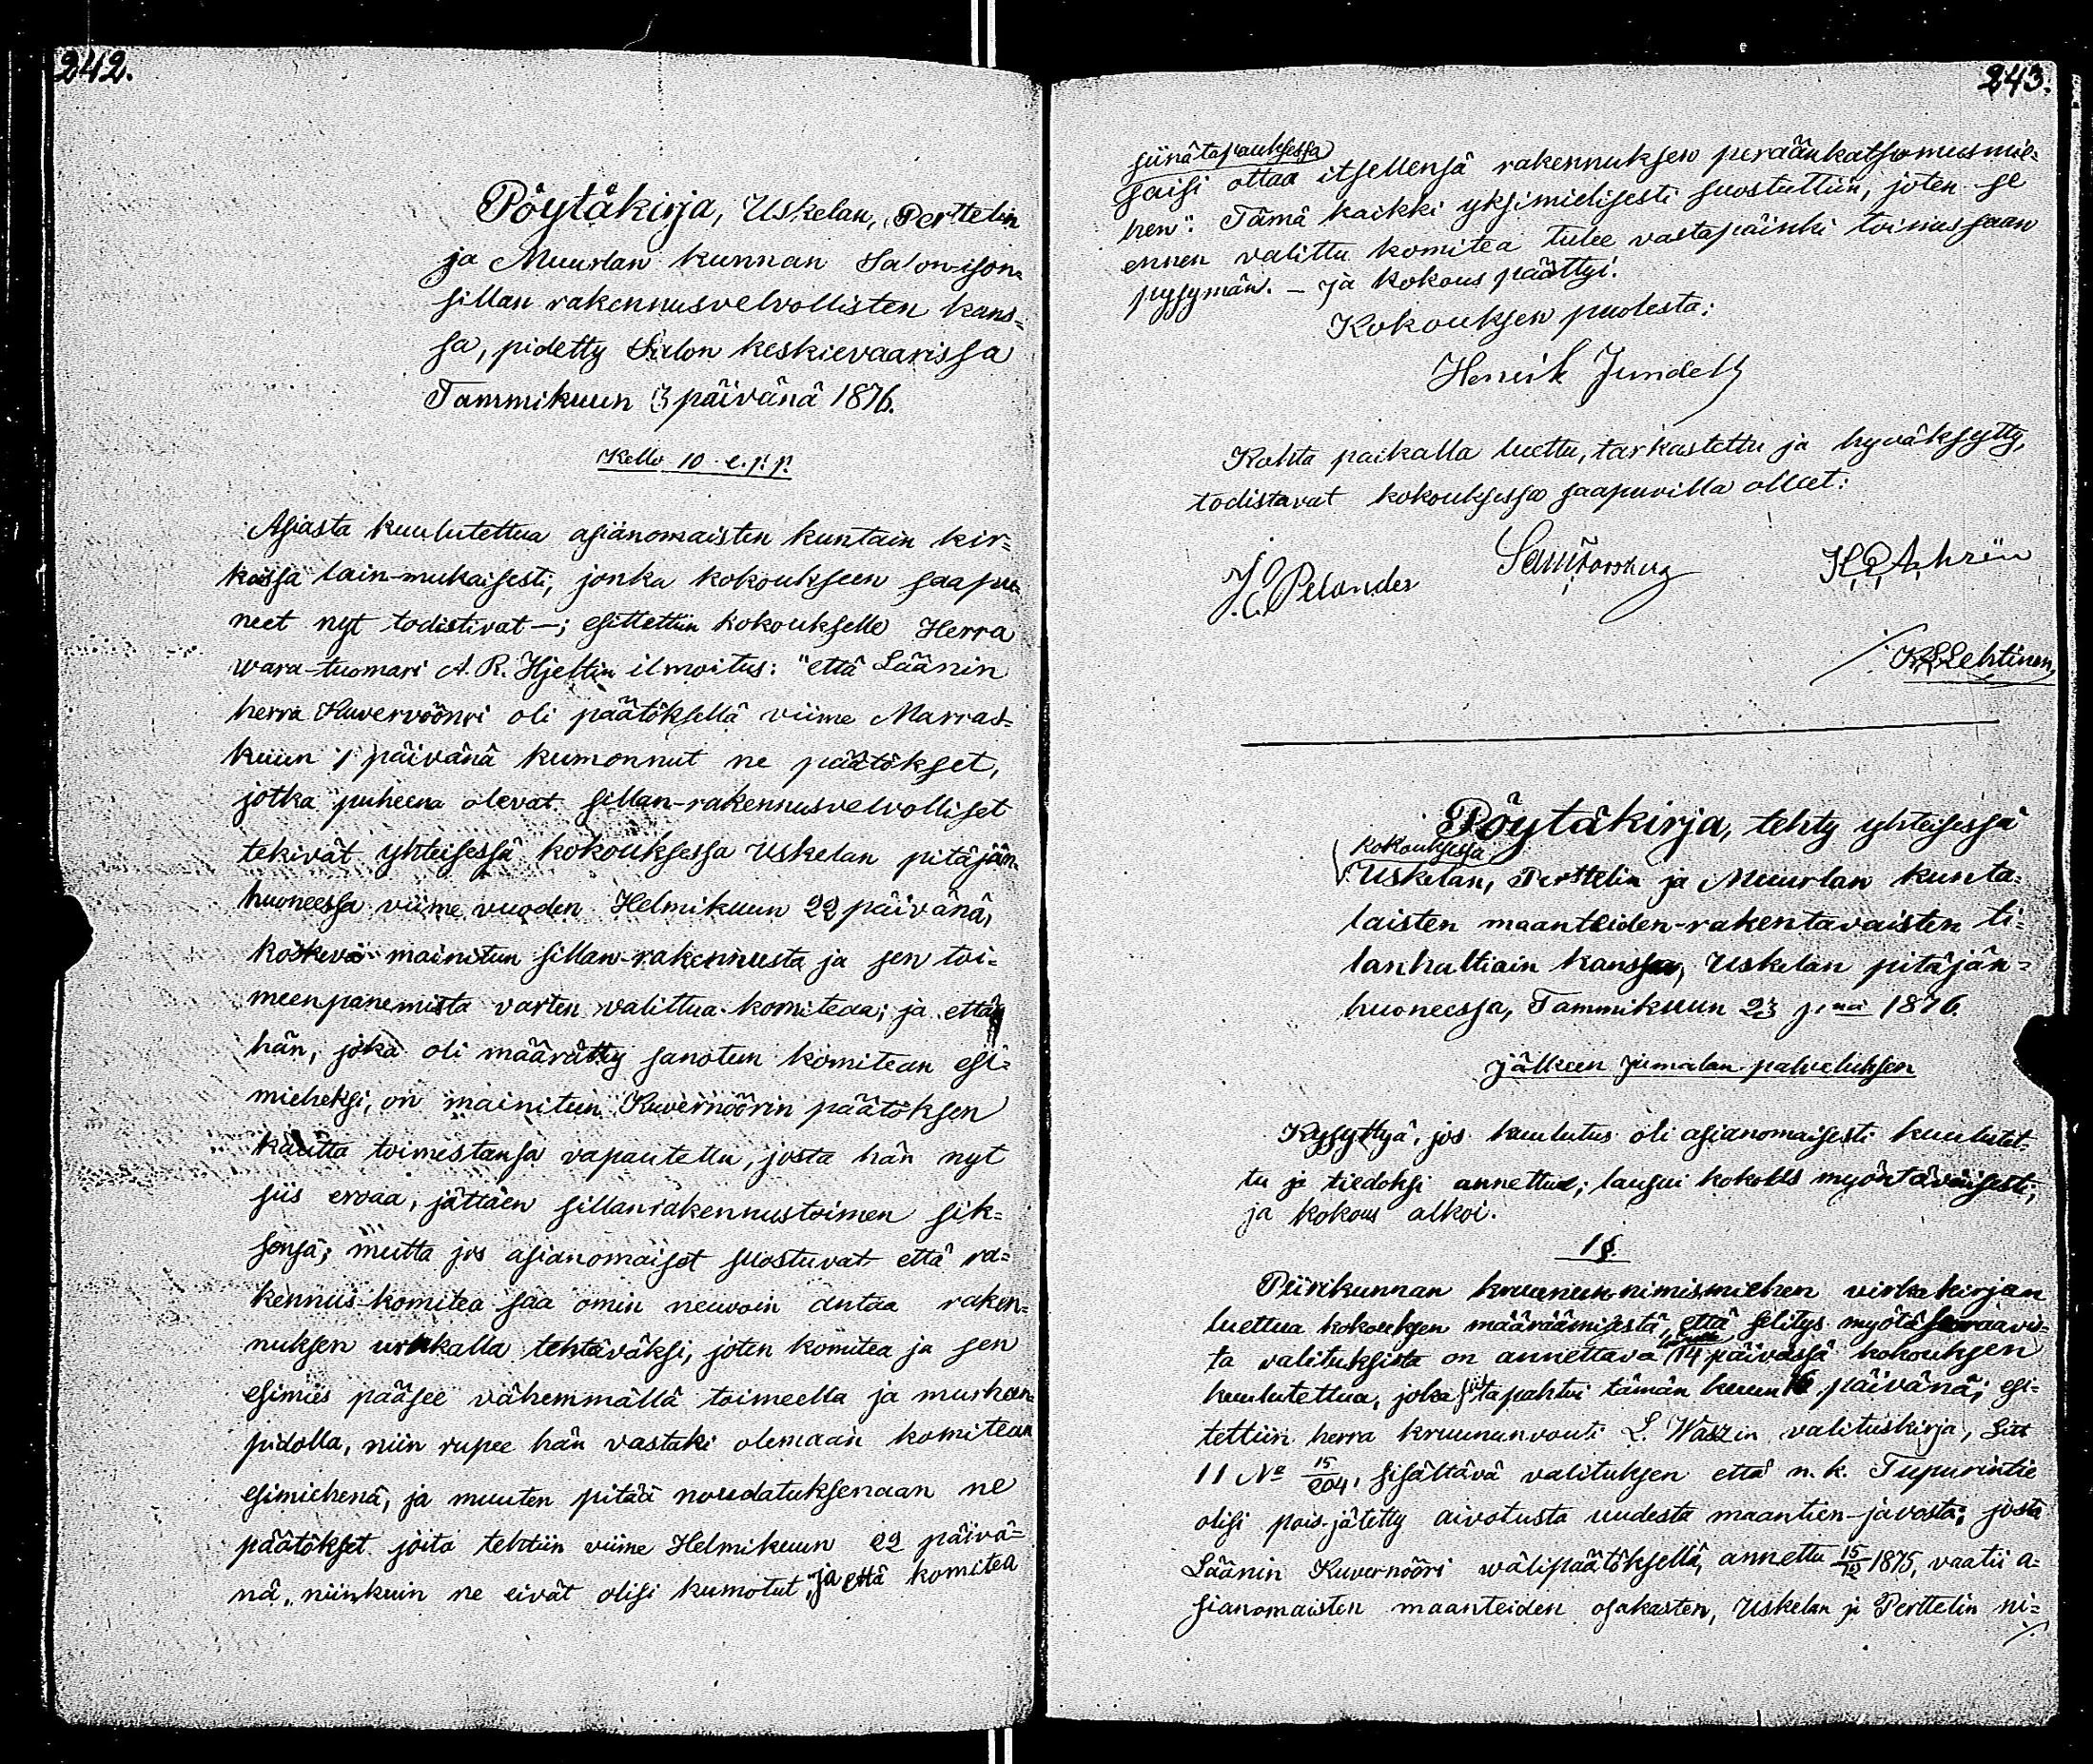 242.
Pöytäkirja, Uskelan, Perttelin
ja Muurlan kunnan Salon-ison-
sillan rakennusvelvollisten kans-
sa, pidetty Salon keskievaarissa
Tammikuun 3 päivänä 1876.
Kello 10 e.p.p.
Asiasta kuulutettua asianomaisten kuntain kir-
koissa lain-mukaisesti, jonka kokoukseen saapu-
neet nyt todistivat —; esitettiin kokoukselle Herra
wara-tuomari A. R. Hjeltin ilmoitus: "että Läänin
herra Kuvernööri oli päätöksellä viime Marras-
kuun 1 päivänä kumonnut ne päätökset,
jotka puheena olevat sillan-rakennusvelvolliset
tekivät yhteisessä kokouksessa Uskelan pitäjän-
huoneessa viime vuoden Helmikuun 22 päivänä,
koskeva mainitun sillan-rakennusta ja sen toi-
meenpanemista varten valittua komiteaa; ja että
hän, joka oli määrätty sanotun komitean esi-
mieheksi, on mainitun Kuvernöörin päätöksen
kautta toimestansa vapautettu, josta hän nyt
siis eroaa, jättäen sillanrakennustoimen sik-
sensä; mutta jos asianomaiset suostuvat että ra-
kennus-komitea saa omin neuvoin antaa raken-
nuksen urakalla tehtäväksi, joten komitea ja sen
esimies pääsee vähemmällä toimeella ja murheen-
pidolla, niin rupee hän vastaki olemaan komitean
esimiehenä, ja muuten pitää noudatuksenaan ne
päätökset joita tehtiin viime Helmikuun 22 päivä-
nä, niinkuin ne eivät olisi kumotut, ja että komitea
243.
siinä tapauksessa
saisi ottaa itsellensä rakennuksen peräänkatsomusmie-
hen". Tämä kaikki yksimielisesti suostuttiin, joten se
ennen valittu komitea tulee vastapäinki toimessaan
pysymän. — ja kokous päättyi.
Kokouksen puolesta:
Henrik Jundell
Kohta paikalla luettu, tarkastettu ja hyväksytty,
todistavat kokouksessa saapuvilla olleet:
J. E. Pelander
K. Lehtinen
Pöytäkirja, tehty yhteisessä
kokouksessa
Uskelan, Perttelin ja Muurlan kunta-
laisten maanteiden-rakentavaisten ti-
lanhaltiain kanssa, Uskelan pitäjän-
huoneessa, Tammikuun 23 p:nä 1876.
jälkeen jumalan palveluksen
Kysyttyä, jos kuulutus oli asianomaisesti kuulutet-
tu ja tiedoksi annettua; lausui kokous myöntäväisesti,
ja kokous alkoi.
1 §.
Piirikunnan kruunun nimismiehen virkakirjan
luettua kokouksen määräämisestä, että selitys myötä seuraavi-
ta valituksista on annettava 14 päivässä kokouksen
kuulutettua, joka tapahtui tämän kuun 16 päivänä; esi-
tettiin herra kruununvouti L. Waszin valituskirja, Litt
11 No 15/204, sisältävä valituksen että n.k. Tupurintie
olisi pois-jätetty aivotusta uudesta maantien-jaosta; josta
Läänin Kuvernööri wälipäätöksellä, annettu 15/12 1875, vaatii a-
sianomaisten maanteiden osakasten, Uskelan ja Perttelin ni-